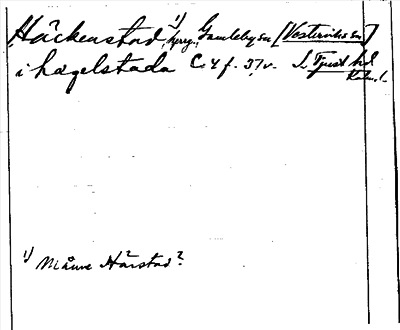 Häckenstad ¹⁾, hrrg., Gamleby sn [Västerviks sn]
i hagelstada C. 4 f. 37v. S. Tjust hd
Kalm. l.
¹⁾ Månne Hårstad?